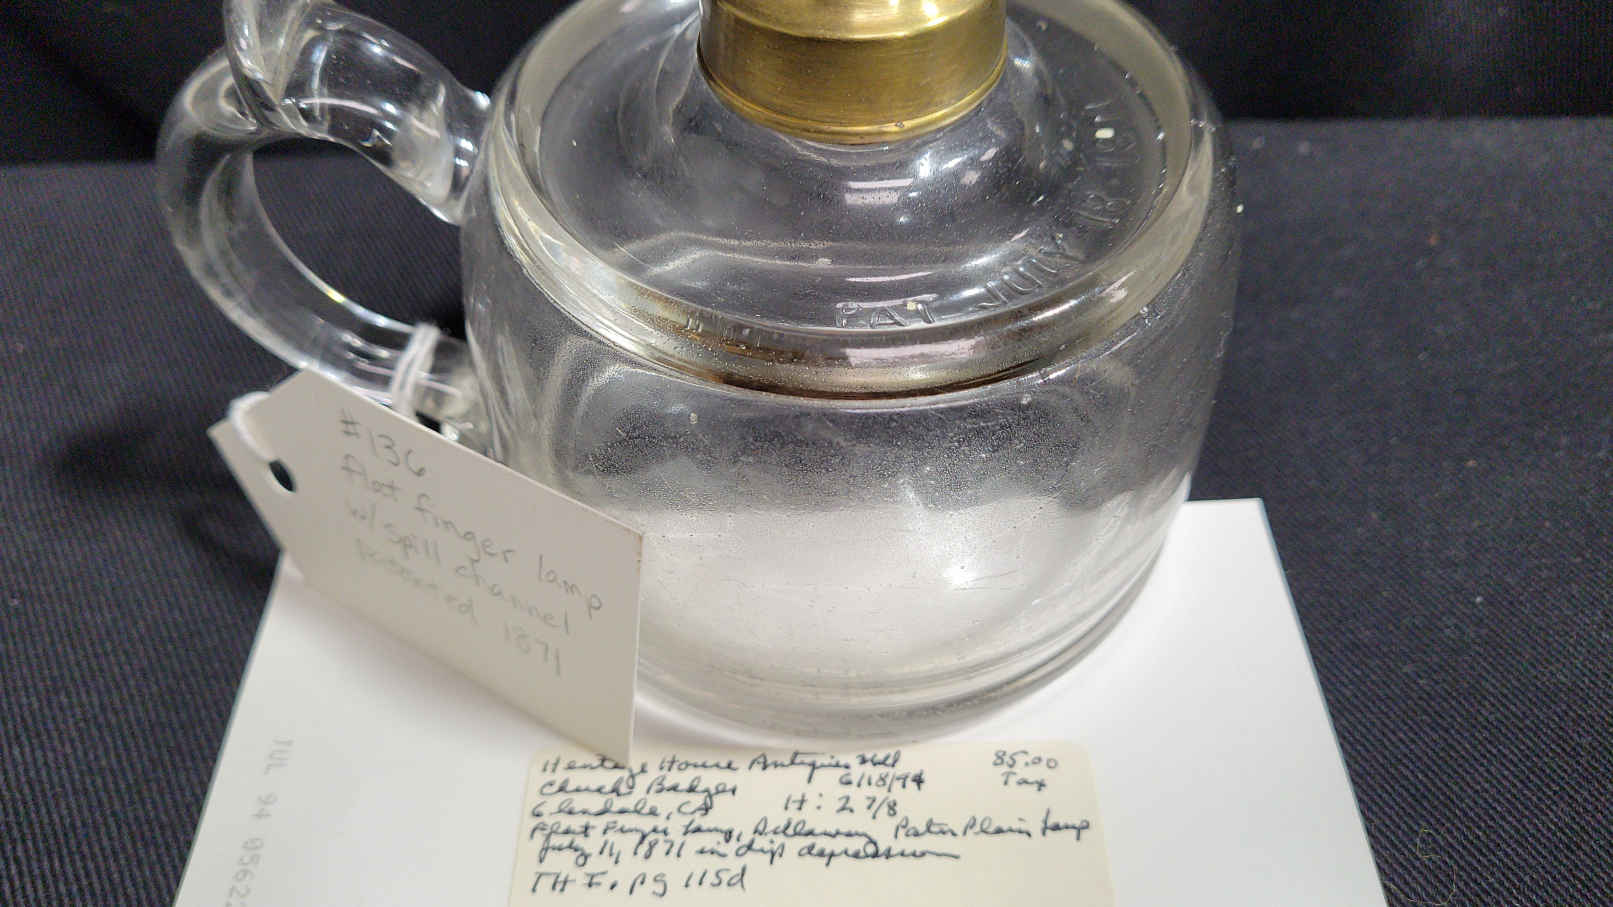 PAT JULY 18. 1871
#136
flat finger lamp
w/ spill channel
patented 1871
Heritage House Antiques Mall 85.00
Chuck Badger 6/18/94 Tax
Glendale, CA H: 2 7/8
Flat Finger Lamp, Dillaway Paten Plain Lamp
July 11, 1871 in drip depression
TH I. pg 115d
JUL 94 0562